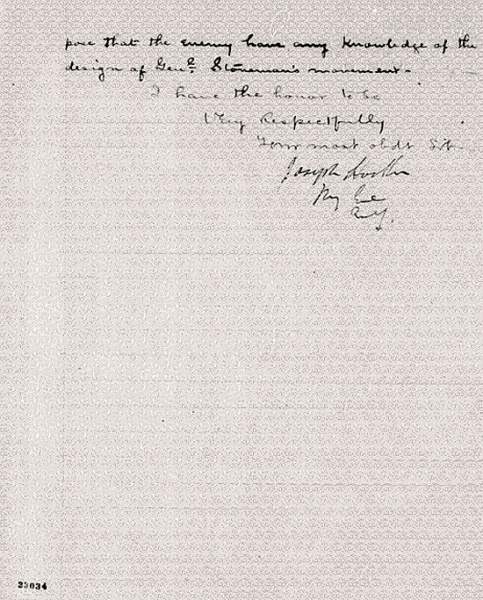 pose that the enemy have any knowledge of the
design of Genl. Stoneman's movement.
I have the honor to be
Very Respectfully
Your most obdt Svt.
Joseph Hooker
Maj Genl
23034